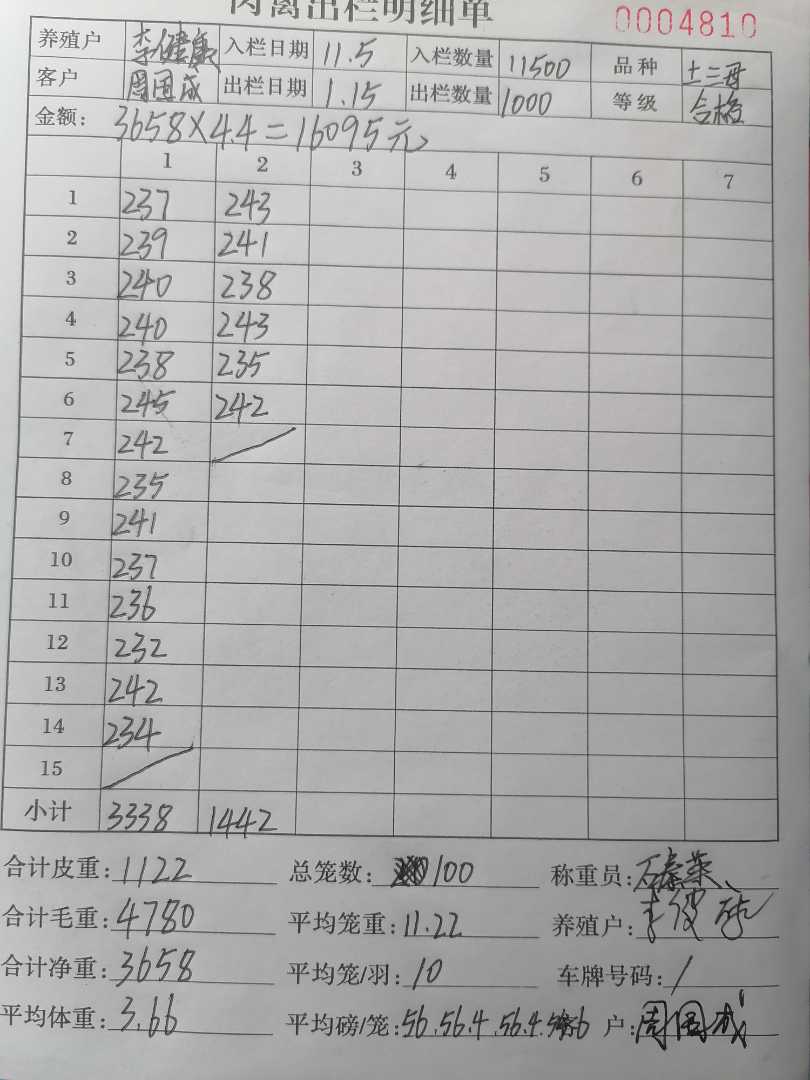 肉禽出栏明细单 0004810
养殖户 李健康 入栏日期 11.5 入栏数量 11500 品种 土二母
客户 周国成 出栏日期 1.15 出栏数量 1000 等级 合格
金额: 3658×4.4=16095元
1 2 3 4 5 6 7
1 237 243
2 239 241
3 240 238
4 240 243
5 238 235
6 245 242
7 242
8 235
9 241
10 237
11 236
12 232
13 242
14 234
15
小计 3338 1442
合计皮重: 1122 总笼数: 100 称重员:
合计毛重: 4780 平均笼重: 11.22 养殖户: 李健康
合计净重: 3658 平均笼/羽: 10 车牌号码: /
平均体重: 3.66 平均磅/笼: 56.56.4.56.4. 户: 周国成